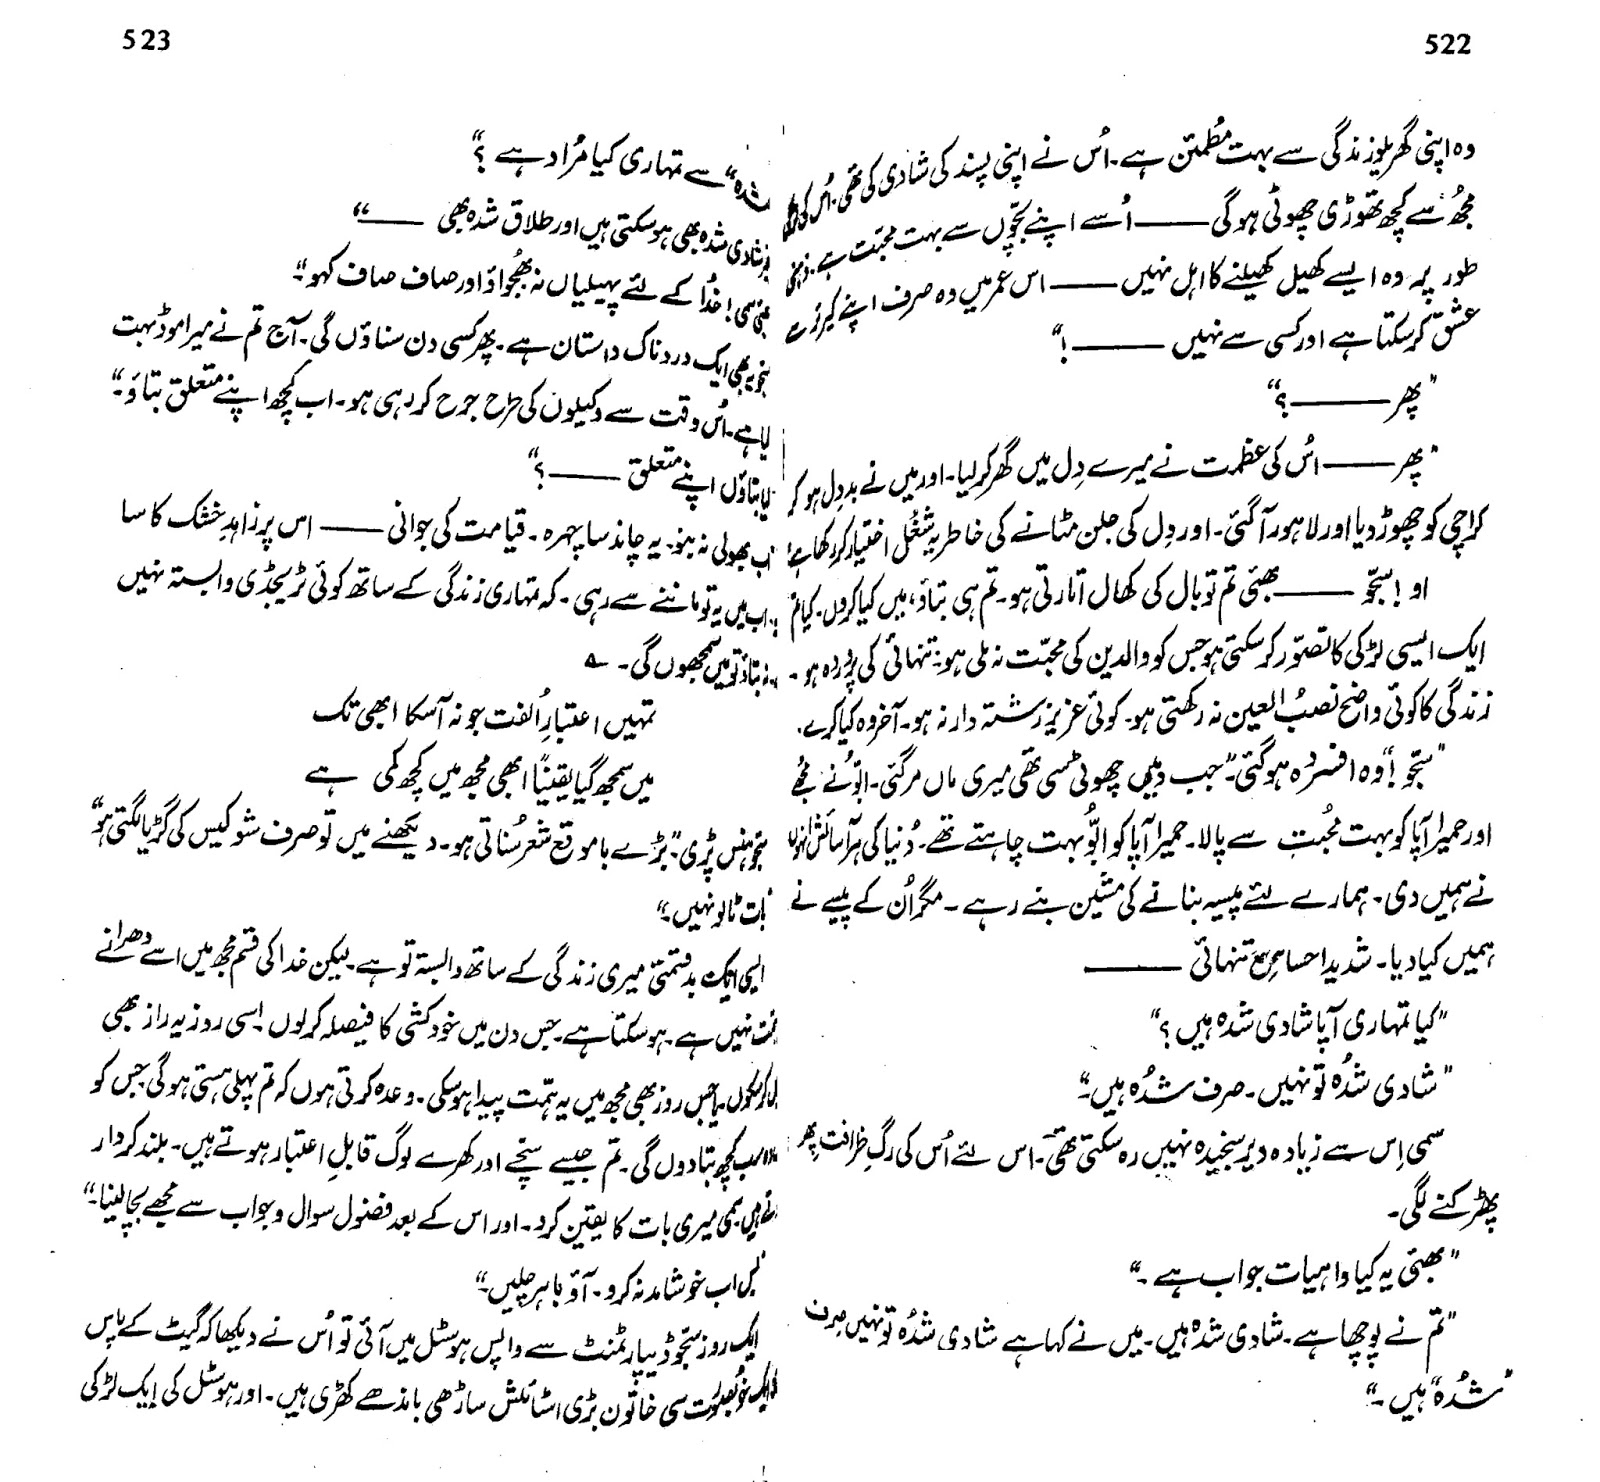 522
وہ اپنی گھریلو زندگی سے بہت مُطمئن ہے۔ اُس نے اپنی پسند کی شادی کی تھی۔ اُس کی
مجھُ سے کچھ تھوڑی چھوٹی ہو گی ——— اُسے اپنے بچّوں سے بہت محبّت ہے۔ ذہنی
طور پہ وہ ایسے کھیل کھیلنے کا اہل نہیں ——— اس عمر میں وہ صرف اپنے کیرئر سے
عشق کر سکتا ہے اور کسی سے نہیں ——— !“
”پھر ——— ؟“
”پھر ——— اُس کی عظمت نے میرے دِل میں گھر کر لیا۔ اور میں نے بد دِل ہو کر
کراچی کو چھوڑ دیا اور لاہور آ گئی۔ اور دِل کی جلن مٹانے کی خاطر یہ شغُل اختیار کر رکھا ہے
او! سجّو ——— بھئی تم تو بال کی کھال اتارتی ہو۔ تم ہی بتاؤ، میں کیا کروں۔ کیا تم
ایک ایسی لڑکی کا تصوّر کر سکتی ہو جس کو والدین کی محبّت نہ ملی ہو۔ تنہائی کی پروردہ ہو۔
زندگی کا کوئی واضح نصبُ العین نہ رکھتی ہو۔ کوئی عزیز رشتہ دار نہ ہو۔ آخر وہ کیا کرے۔
”سجّو!“ وہ افسردہ ہو گئی۔ ”جب میں چھوٹی سی تھی میری ماں مر گئی۔ ابّو نے مجھے
اور حمیرا آپا کو بہت محُبت سے پالا۔ حمیرا آپا کو ابّو بہت چاہتے تھے۔ دُنیا کی ہر آسائش انہوں
نے ہمیں دی۔ ہمارے لئے پیسہ بنانے کی مشین بنے رہے۔ مگر اُن کے پیسے نے
ہمیں کیا دیا۔ شدید احساسِ تنہائی ———
”کیا تمہاری آپا شادی شدہ ہیں؟“
”شادی شدُہ تو نہیں۔ صرف شدُہ ہیں۔“
سمی اِس سے زیادہ دیر سنجیدہ نہیں رہ سکتی تھی۔ اس لئے اُس کی رگِ ظرافت پھر
پھڑکنے لگی۔
”بھئی یہ کیا واہیات جواب ہے۔“
”تم نے پوچھا ہے۔ شادی شدہ ہیں۔ میں نے کہا ہے شادی شدُہ تو نہیں صرف
”شدُہ“ ہیں۔“
523
شدہ“ سے تمہاری کیا مُراد ہے ؟“
شادی شدہ بھی ہو سکتی ہیں اور طلاق شدہ بھی ———“
سمی! خدُا کے لئے پہیلیاں نہ بھُجواؤ اور صاف صاف کہو۔“
یہ بھی ایک دردناک داستان ہے۔ پھر کسی دن سناؤں گی۔ آج تم نے میرا موڈ بہت
ہے۔ اُس وقت سے وکیلوں کی طرح جرح کر رہی ہو۔ اب کچھ اپنے متعلق بتاؤ۔“
بتاؤں اپنے متعلق ——— ؟“
اب بھولی نہ بنو۔ یہ چاند سا چہرہ۔ قیامت کی جوانی ——— اس پر زاہدِ خشک کا سا
اب میں یہ تو ماننے سے رہی۔ کہ تمہاری زندگی کے ساتھ کوئی ٹریجڈی وابستہ نہیں
نہ بتاؤ تو میں سمجھوں گی۔ ؎
تمہیں اعتبارِ اُلفت جو نہ آ سکا ابھی تک
میں سمجھ گیا یقیناً ابھی مجھ میں کچھ کمی ہے
سجّو ہنس پڑی۔ ”بڑے با موقع شعر سُناتی ہو۔ دیکھنے میں تو صرف شو کیس کی گڑیا لگتی ہو“
بات ٹالو نہیں۔“
ایسی ایک بد قسمتی میری زندگی کے ساتھ وابستہ تو ہے۔ لیکن خدا کی قسم مجھ میں اسے دھرانے
نہیں ہے۔ ہو سکتا ہے۔ جس دن میں خود کشی کا فیصلہ کر لوں اسی روز یہ راز بھی
کر سکوں۔ یا جس روز بھی مجھ میں یہ ہمّت پیدا ہو سکی۔ وعدہ کرتی ہوں کہ تم پہلی ہستی ہو گی جس کو
سب کچھ بتا دوں گی۔ تم جیسے سچّے اور کھرے لوگ قابلِ اعتبار ہوتے ہیں۔ بلند کردار
ہیں۔ سمی میری بات کا یقین کرو۔ اور اس کے بعد فضول سوال و جواب سے مجھے بچا لینا۔“
اب خوشامد نہ کرو۔ آؤ باہر چلیں۔“
ایک روز سجّو ڈیپارٹمنٹ سے واپس ہوسٹل میں آئی تو اُس نے دیکھا کہ گیٹ کے پاس
ایک خوبصُورت سی خاتون بڑی اسٹائلش ساڑھی باندھے کھڑی ہیں۔ اور ہوسٹل کی ایک لڑکی